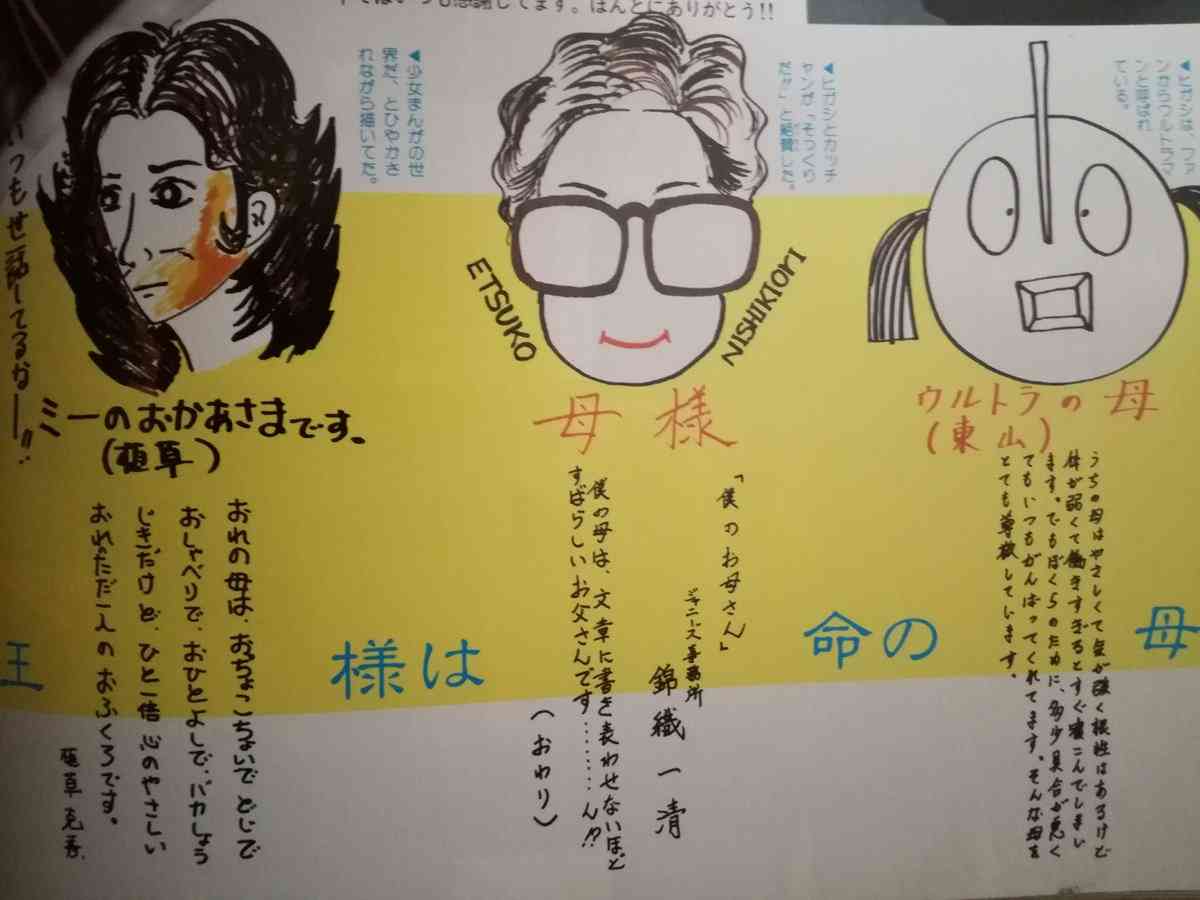 いつも感謝してます。ほんとにありがとう!!
◀ヒガシは、ファ
ンからウルトラマ
ンと呼ばれ
ている。
ウルトラの母
(東山)
うちの母はやさしくて気が強く根性はあるけど
体が弱くて働きすぎるとすぐ寝こんでしまい
ます。でもぼくらのために、多少具合が悪く
てもいつもがんばってくれてます。そんな母を
とても尊敬しています。
◀ヒガシとカッチ
ャンが「そっくり
だァ」と絶賛した。
ETSUKO
NISHIKIORI
母様
「僕のお母さん」
ジャニーズ事務所
錦織一清
僕の母は、文章に書き表わせないほど
すばらしいお父さんです………ん!?
(おわり)
◀少女まんがの世
界だ、とひやかさ
れながら描いてた。
ミーのおかあさまです。
(植草)
おれの母は、おっちょこちょいでどじで
おしゃべりで、おひとよしで、バカしょう
じきだけど、ひと一倍心のやさしい
おれのただ一人のおふくろです。
植草克秀.
いつもせ話してるなー!!
王
様は
命の
母